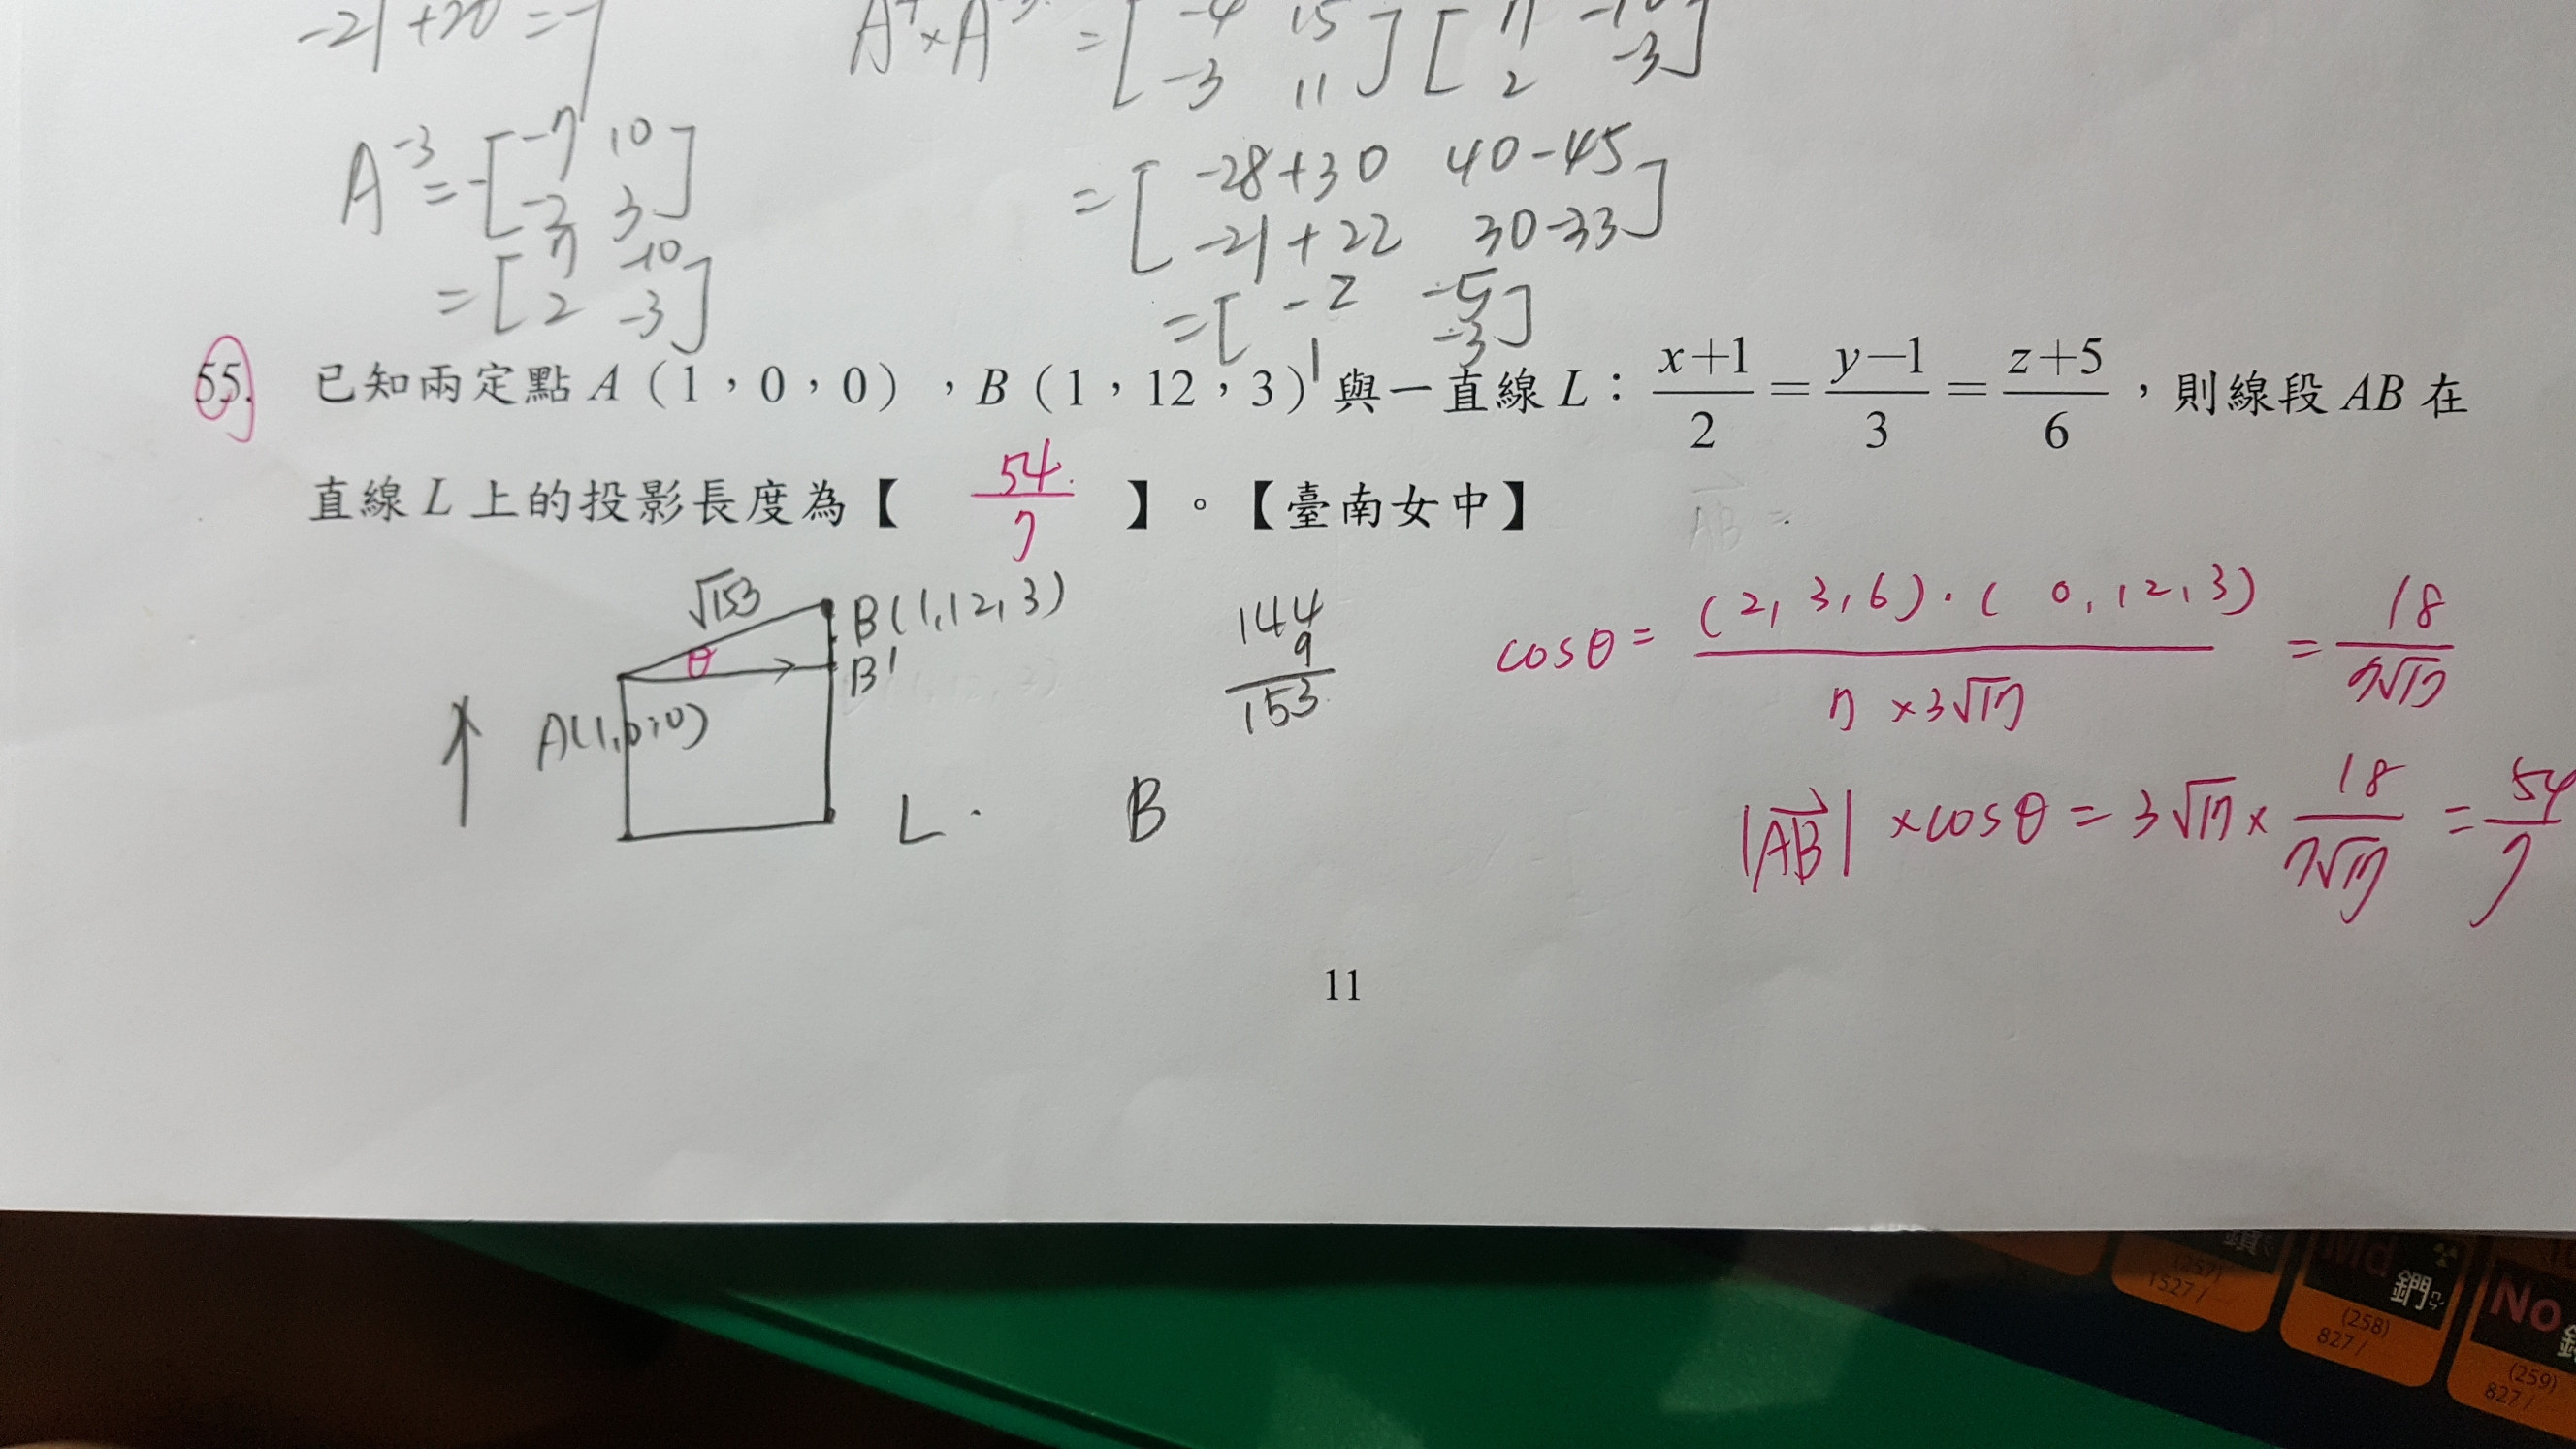 -21+20=-1
A⁴×A⁻³ = [ -4 15 ] [ 7 -10 ]
-3 11 2 -3
A⁻³ = -[ -7 10 ]
-2 3
= [ 7 -10 ]
2 -3
= [ -28+30 40-45 ]
-21+22 30-33
= [ -2 -5 ]
1 -3
55. 已知兩定點 A(1,0,0),B(1,12,3)與一直線 L:(x+1)/2=(y−1)/3=(z+5)/6,則線段 AB 在
直線 L 上的投影長度為【 54/7 】。【臺南女中】
AB =
√153
B(1,12,3)
θ
B'
A(1,0,0)
L
B
144
9
153
cosθ = (2,3,6)·(0,12,3) / 7×3√17 = 18 / 7√17
|AB| ×cosθ = 3√17 × 18 / 7√17 = 54 / 7
11
鑽
(257)
1527/
Md
鍆
(258)
827/
No
(259)
827/